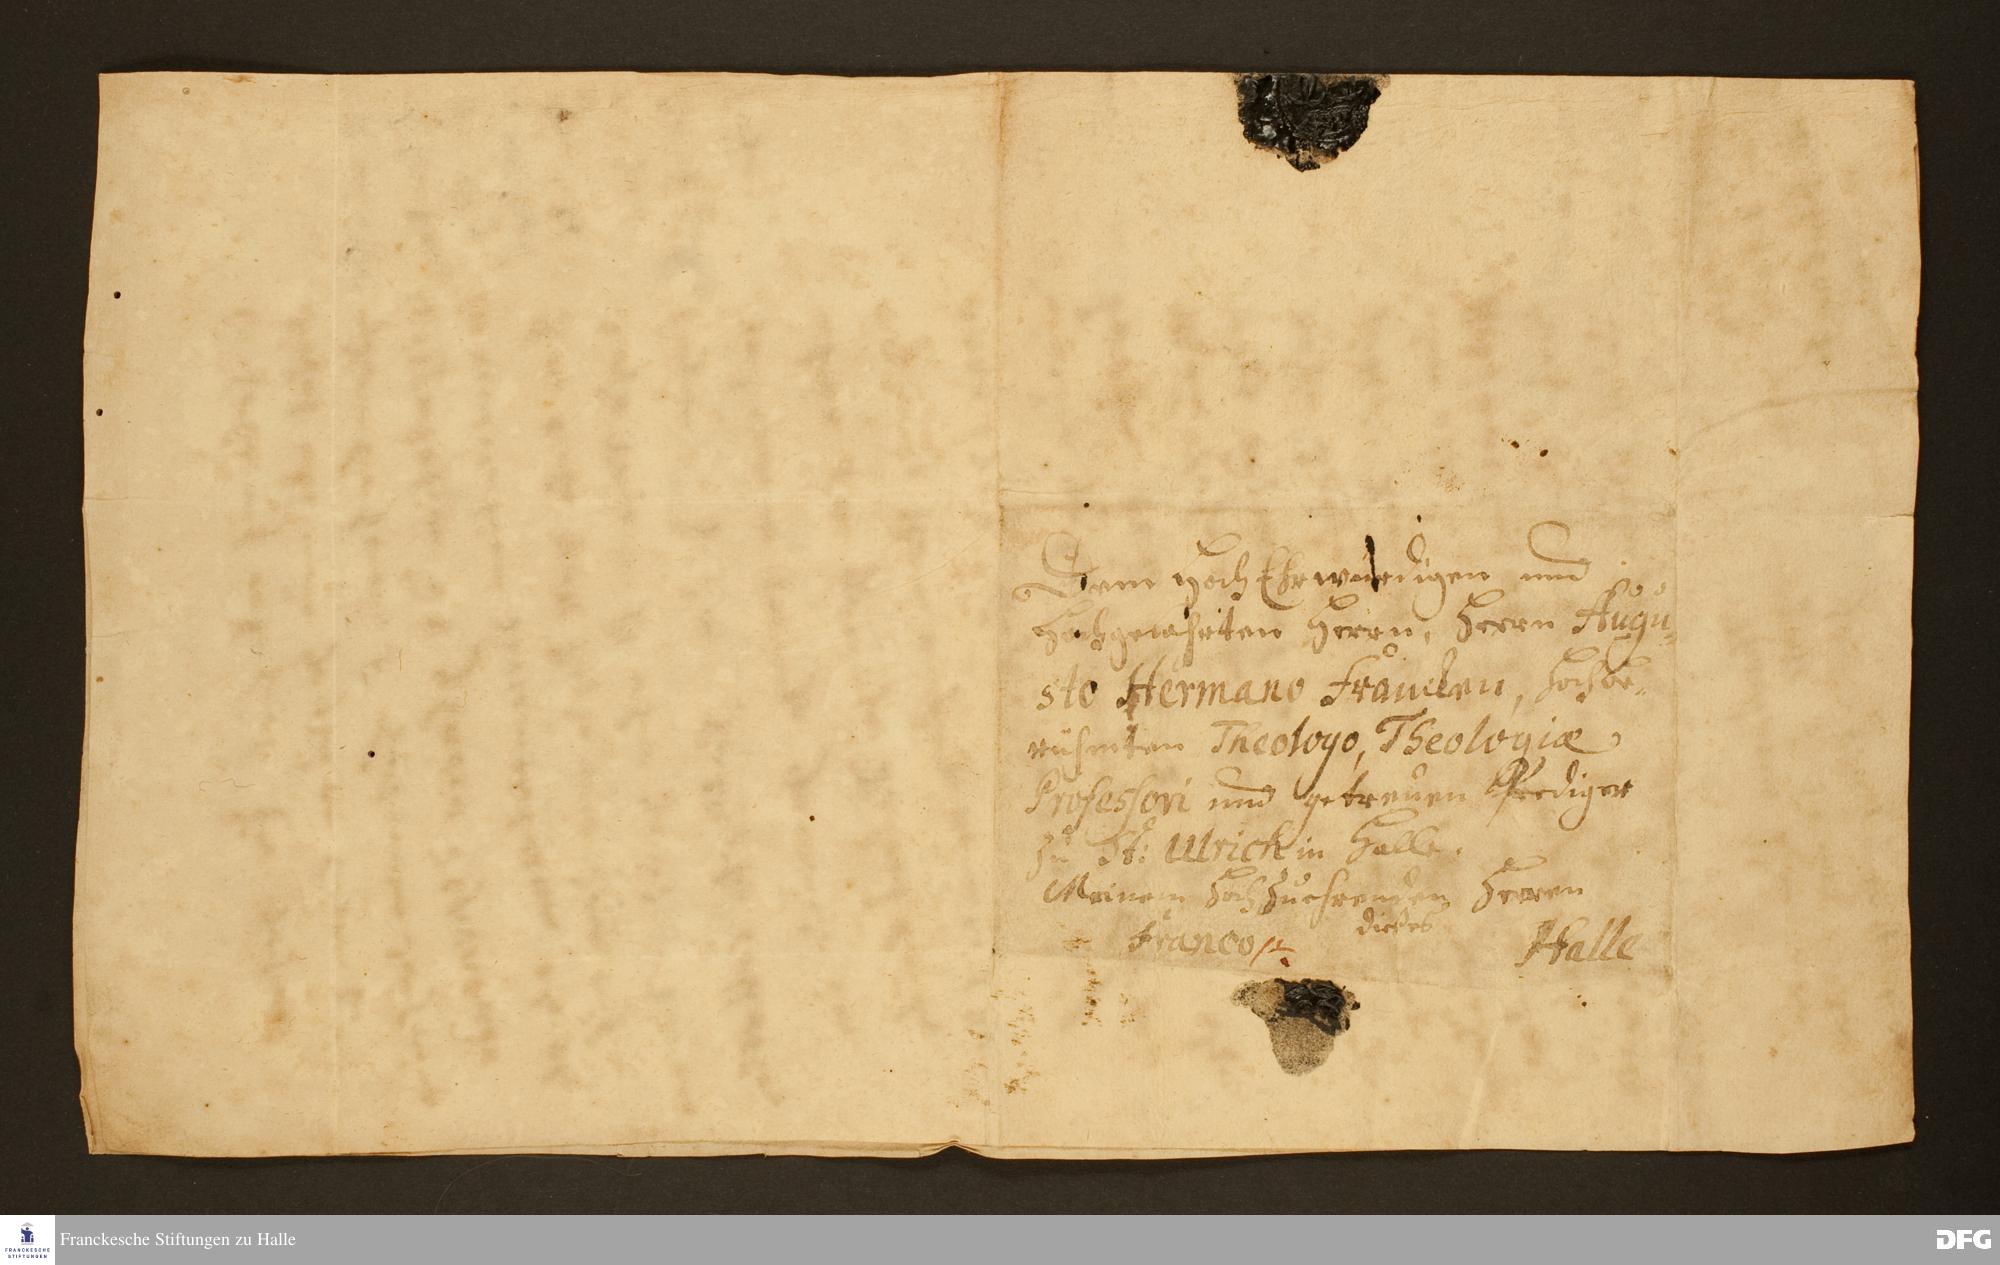 Dem HochEhrwürdigen und
Hochgelahrten Herrn, Herrn Augu-
sto Hermano Francken, hochbe-
rühmten Theologo, Theologiæ
Professori und getreuen Prediger
zu St: Ulrich in Halle.
Meinem HochZuehrenden Herren
dießes
Franco Halle
Franckesche Stiftungen zu Halle
FRANCKESCHE
STIFTUNGEN
DFG